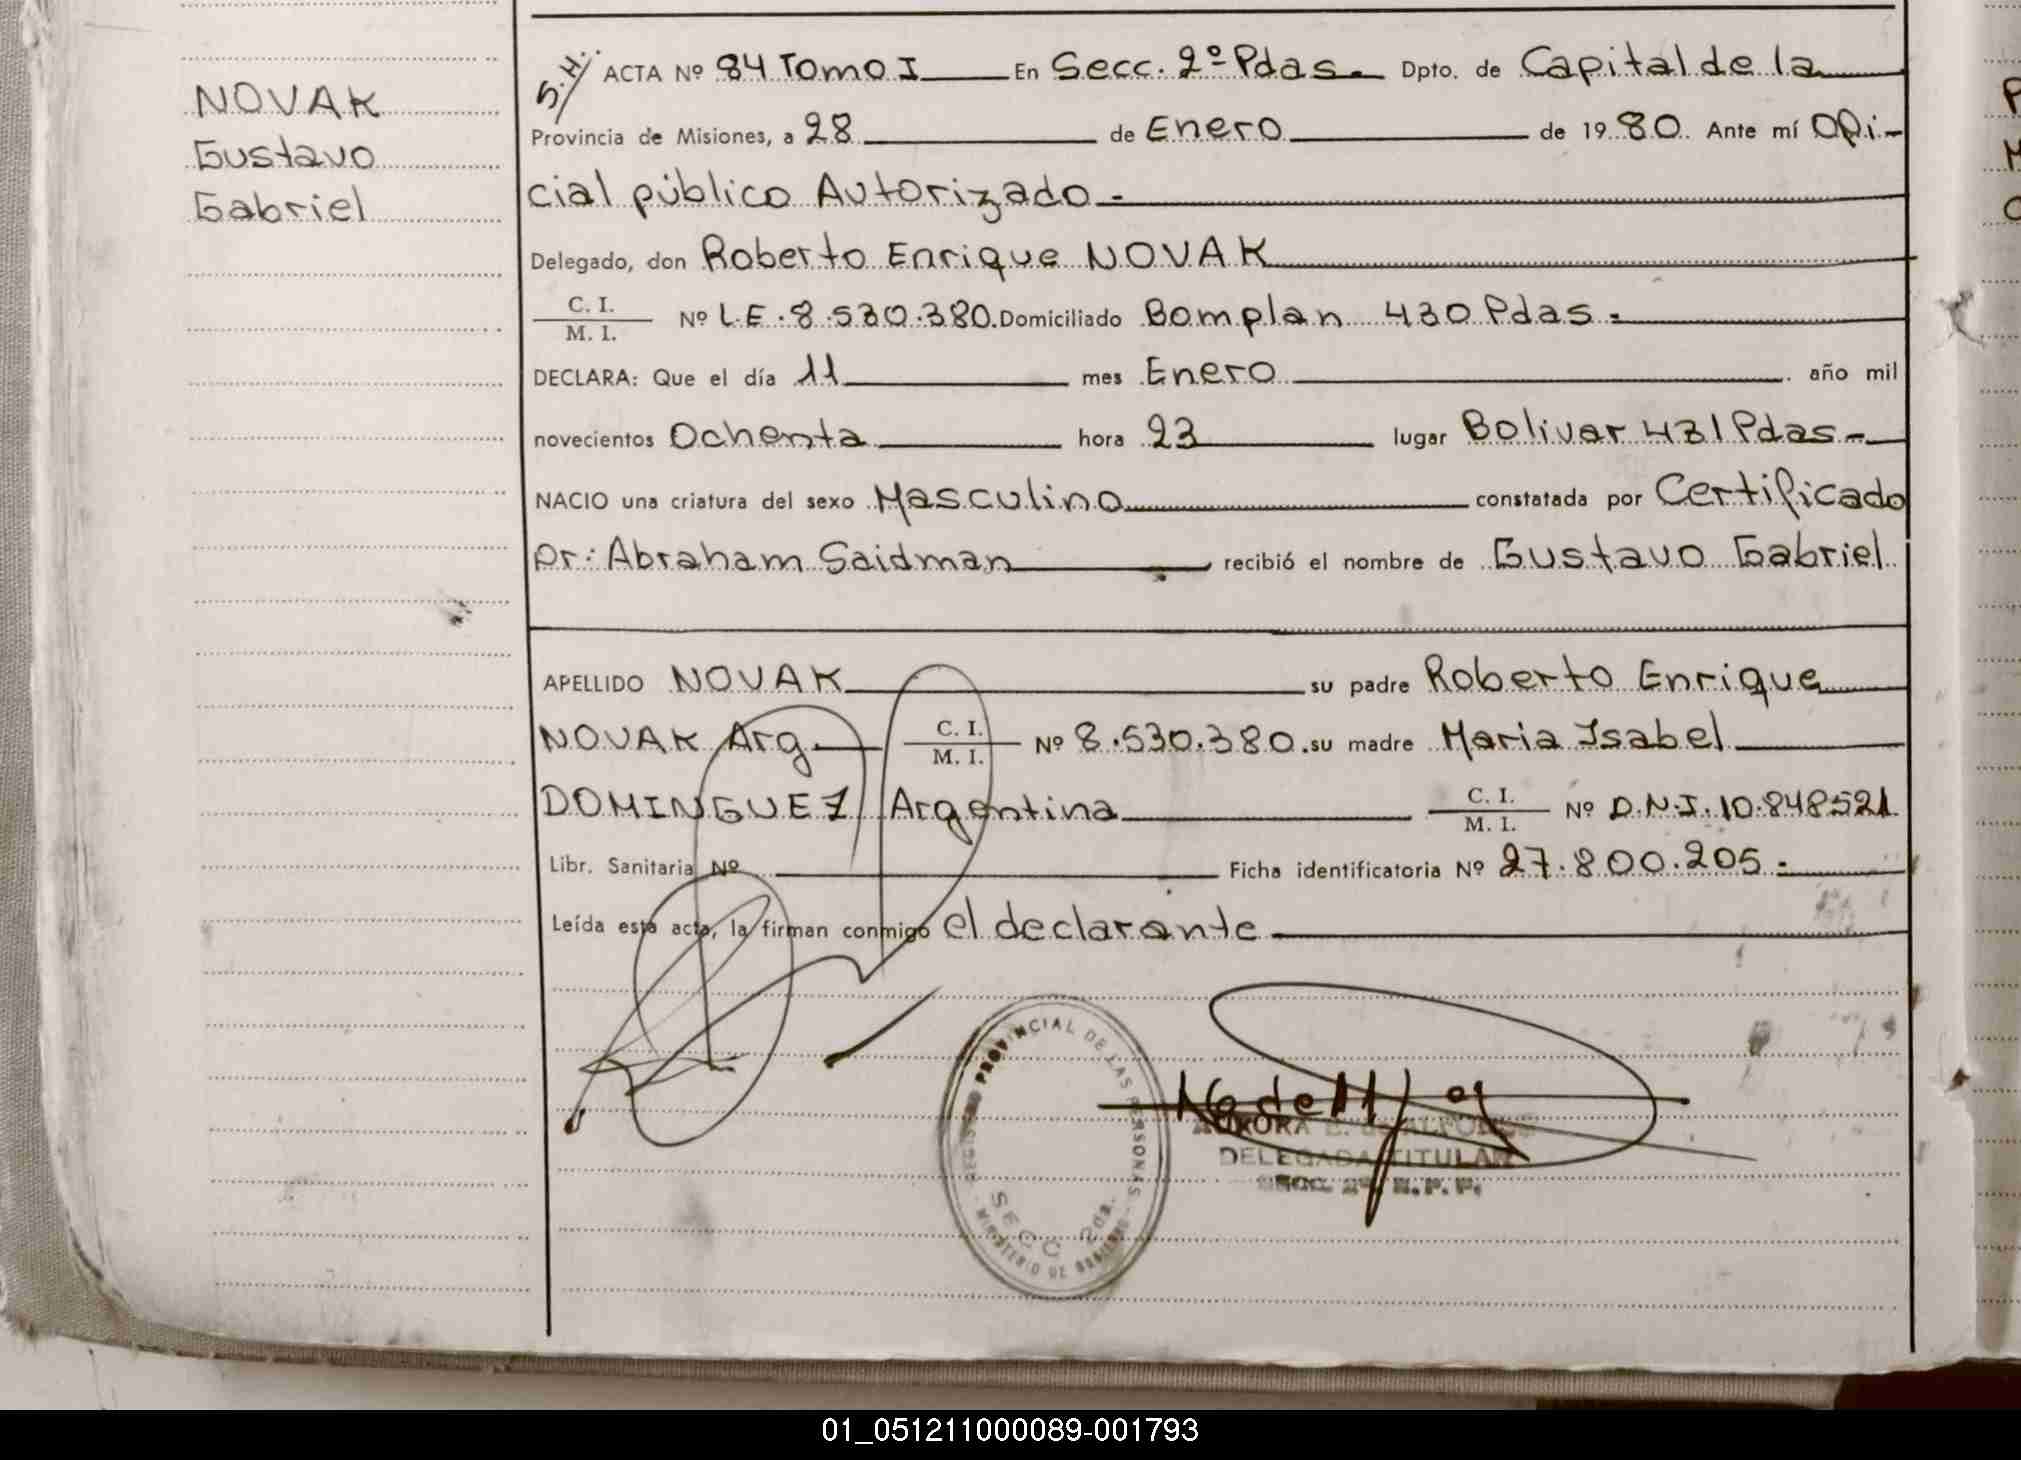 NOVAK
Gustavo
Gabriel
S.H.
ACTA Nº 84 Tomo I En Secc. 2º Pdas. Dpto. de Capital de la
Provincia de Misiones, a 28 de Enero de 1980. Ante mí Ofi-
cial público Autorizado.-
Delegado, don Roberto Enrique NOVAK
C. I.
M. I. Nº L.E. 8.530.380. Domiciliado Bomplan 430 Pdas.-
DECLARA: Que el día 11 mes Enero año mil
novecientos Ochenta hora 23 lugar Bolivar 431 Pdas.-
NACIO una criatura del sexo Masculino constatada por Certificado
Dr: Abraham Saidman recibió el nombre de Gustavo Gabriel
APELLIDO NOVAK su padre Roberto Enrique
NOVAK Arg. C. I.
M. I. Nº 8.530.380. su madre Maria Isabel
DOMINGUEZ Argentina C. I.
M. I. Nº D.N.I. 10.848521
Libr. Sanitaria Nº Ficha identificatoria Nº 27.800.205.-
Leída esta acta, la firman conmigo el declarante
REGISTRO PROVINCIAL DE LAS PERSONAS
SECC 2da.
MINISTERIO DE GOBIERNO
AURORA E.
DELEGADA TITULAR
SECC. 2ª R. P. P.
01_051211000089-001793